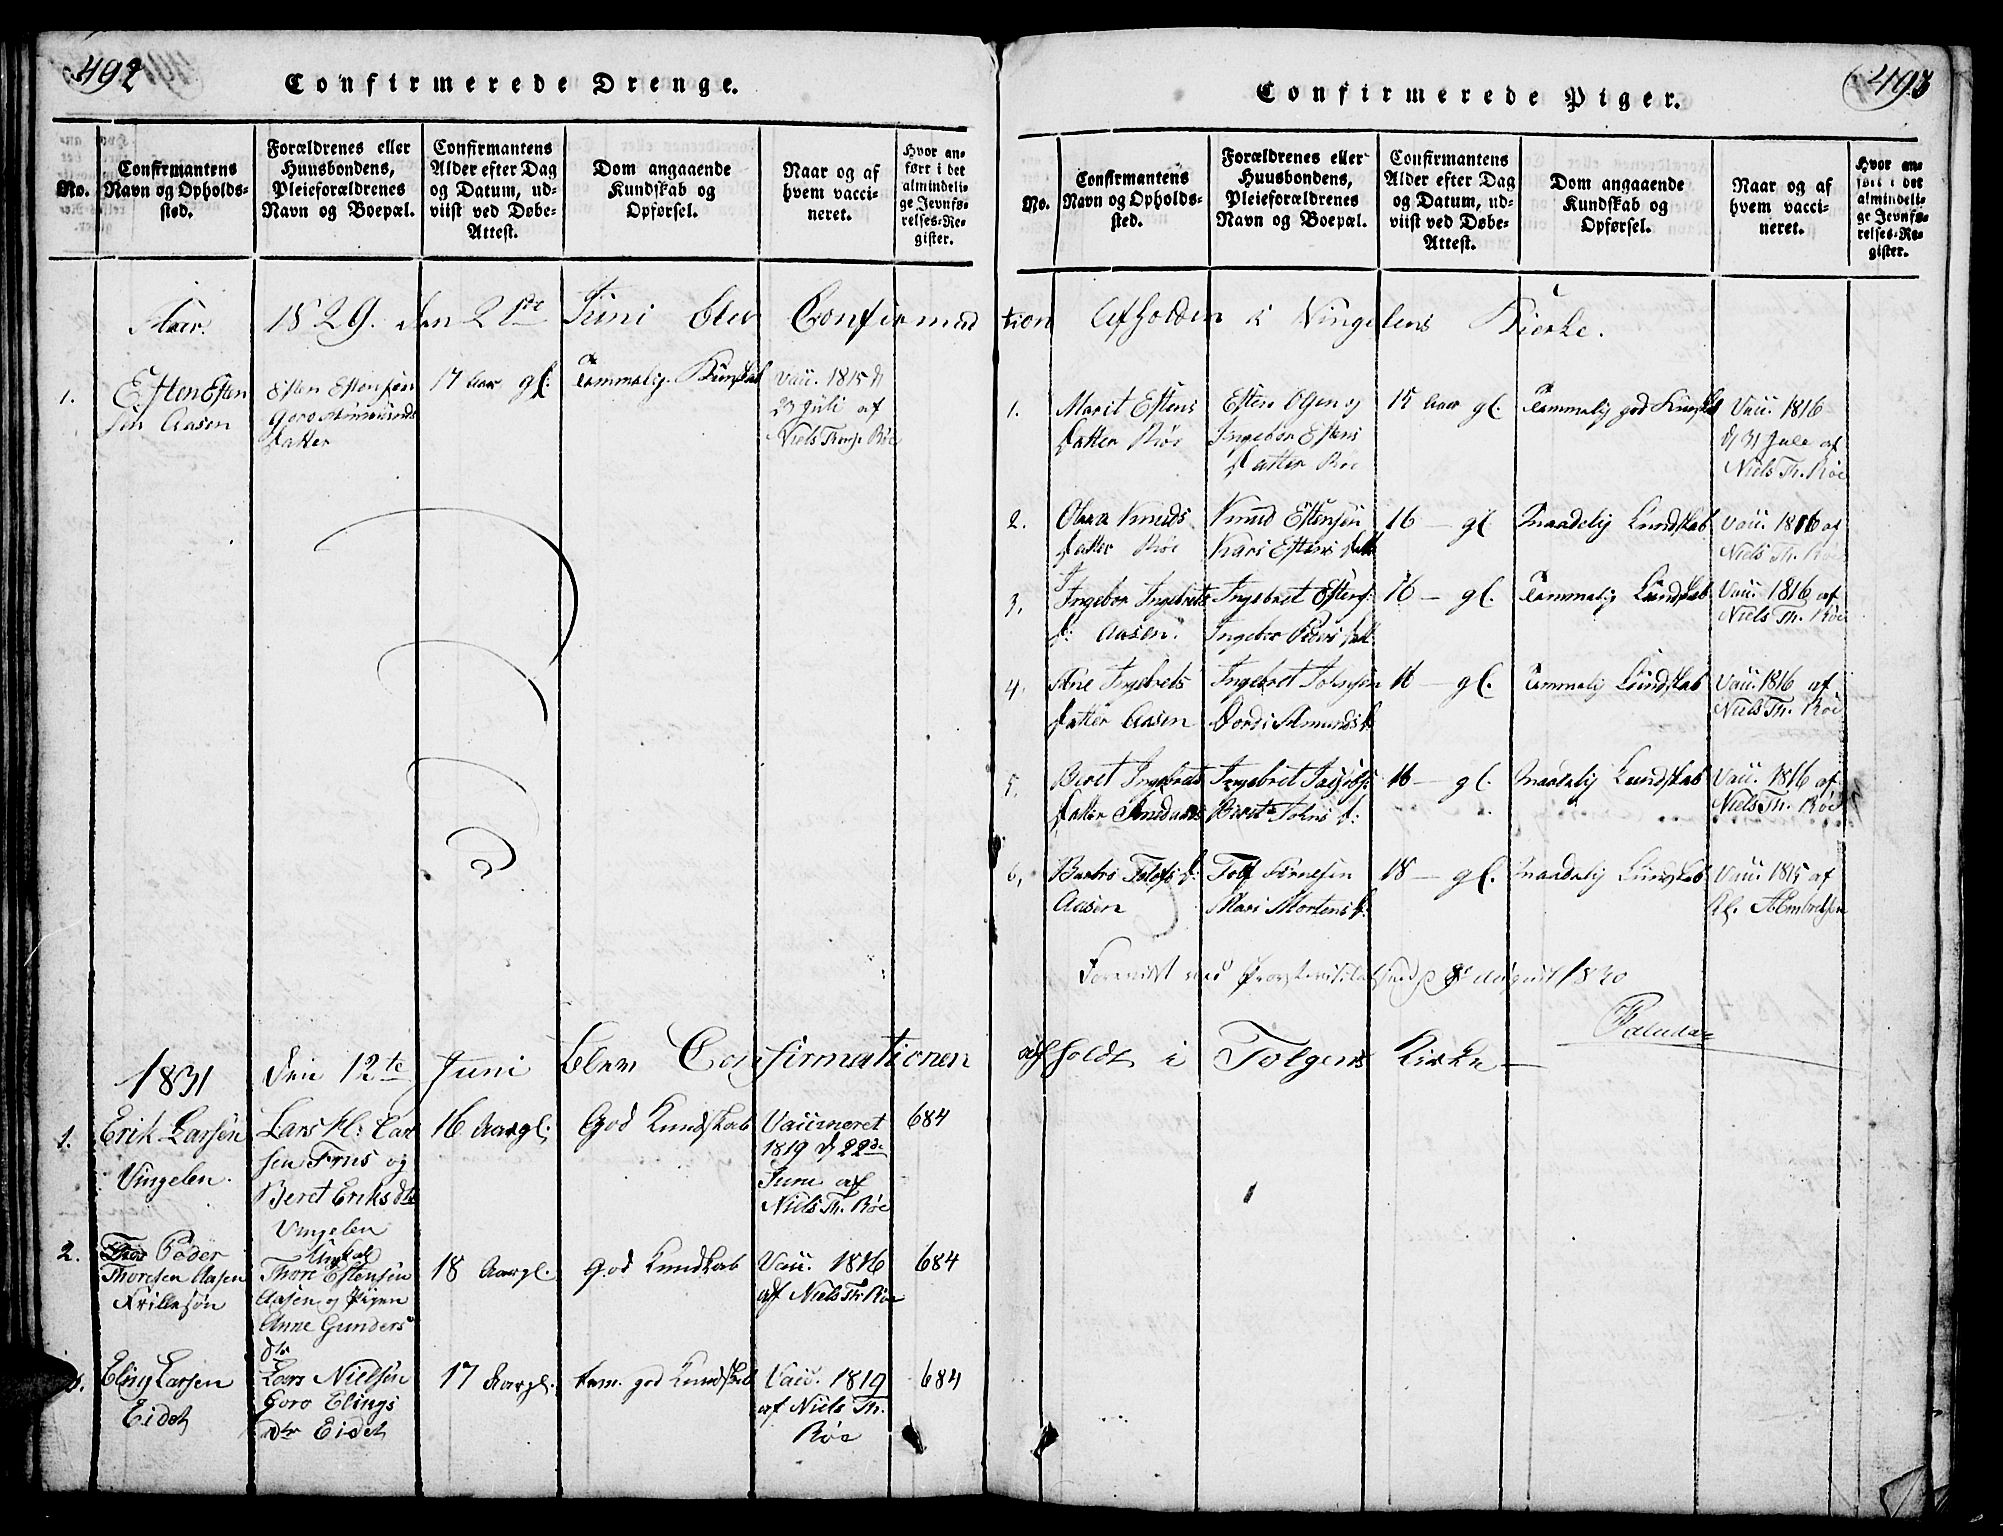 492
Confirmerede Drenge.
No.
Confirmantens
Navn og Opholds-
sted.
Forældrenes eller
Huusbondens,
Pleieforældrenes
Navn og Boepæl.
Confirmantens
Alder efter Dag
og Datum, ud-
viist ved Døbe-
Attest.
Dom angaaende
Kundskab og
Opførsel.
Naar og af
hvem vacci-
neret.
Hvor an-
ført i det
almindeli-
ge Jevnfø-
relses-Re-
gister.
Aar 1829. den 21de Juni blev Confirma
1.
Esten Esten
sön Aasen
Esten Estensön
Goro Amunds
datter
17 Aar gl:
Temmelig Kundskab
Vac. 1815 d
23 Juli af
Niels Thorse Röe
1831 Den 12te Juni blev Confirmationen
1.
Erik Larsen
Vingelen
Lars Kl: Lar
sen Frus og
Beret Eriks dtr
Vingelen
16 Aar gl:
God Kundskab
Vaccineret
1819 d 22de
Juni af
Niels Th. Röe
684
2.
Peder
Thoresen Aasen
Frillesøn
Ungkal
Thore Estensøn
Aasen og Pigen
Anne Gunders
dtr
18 Aar gl.
God Kundskab
Vac. 1816
af Niels Th. Röe
684
3.
Eling Larsen
Eidet
Lars Nielsen
Goro Elings
dtr Eidet
17 Aar gl.
tem. god Kundskab
Vac. 1819
af Niels Th.
Röe
684
493
Confirmerede Piger.
No.
Confirmantens
Navn og Opholds-
sted.
Forældrenes eller
Huusbondens,
Pleieforældrenes
Navn og Boepæl.
Confirmantens
Alder efter Dag
og Datum, ud-
viist ved Døbe-
Attest.
Dom angaaende
Kundskab og
Opførsel.
Naar og af
hvem vacci-
neret.
Hvor an-
ført i det
almindeli-
ge Jevnfø-
relses-Re-
gister.
tion Afholden i Vingelens Kierke.
1.
Marit Estens
datter Röe
Esten Olsen og
Ingebor Estens
datter Röe
15 Aar gl.
Temmelig god Kundskab
Vac. 1816
d 31 Jule af
Niels Th. Röe
2.
Knuds
datter Röe
Knud Estensön
Kari Estens datt
16 — gl
Maadelig Kundskab
Vac. 1816 af
Niels Th. Röe
3.
Ingebor Ingebrets
d: Aasen.
Ingebret Estens:
Ingebor Peders datt
16 — gl.
Temmelig Kundskab
Vac. 1816 af
Niels Th. Röe
4.
Ane Ingebrets
datter Aasen
Ingebret Johnsön
Dordi Amunds d.
16 — gl.
Temmelig Kundskab
Vac. 1816 af
Niels Th. Röe
5.
Beret Ingebrets
datter
Ingebret
Beret Johns d:
16 — gl.
Maadelig Kundskab
Vac. 1816 af
Niels Th. Röe
6.
Barbro d:
Aasen
Mari Mortens d:
18 — gl.
Maadelig Kundskab
Vac. 1815 af
Foreviist ved 8de August 1830
afholdt i Tolgens Kirke —